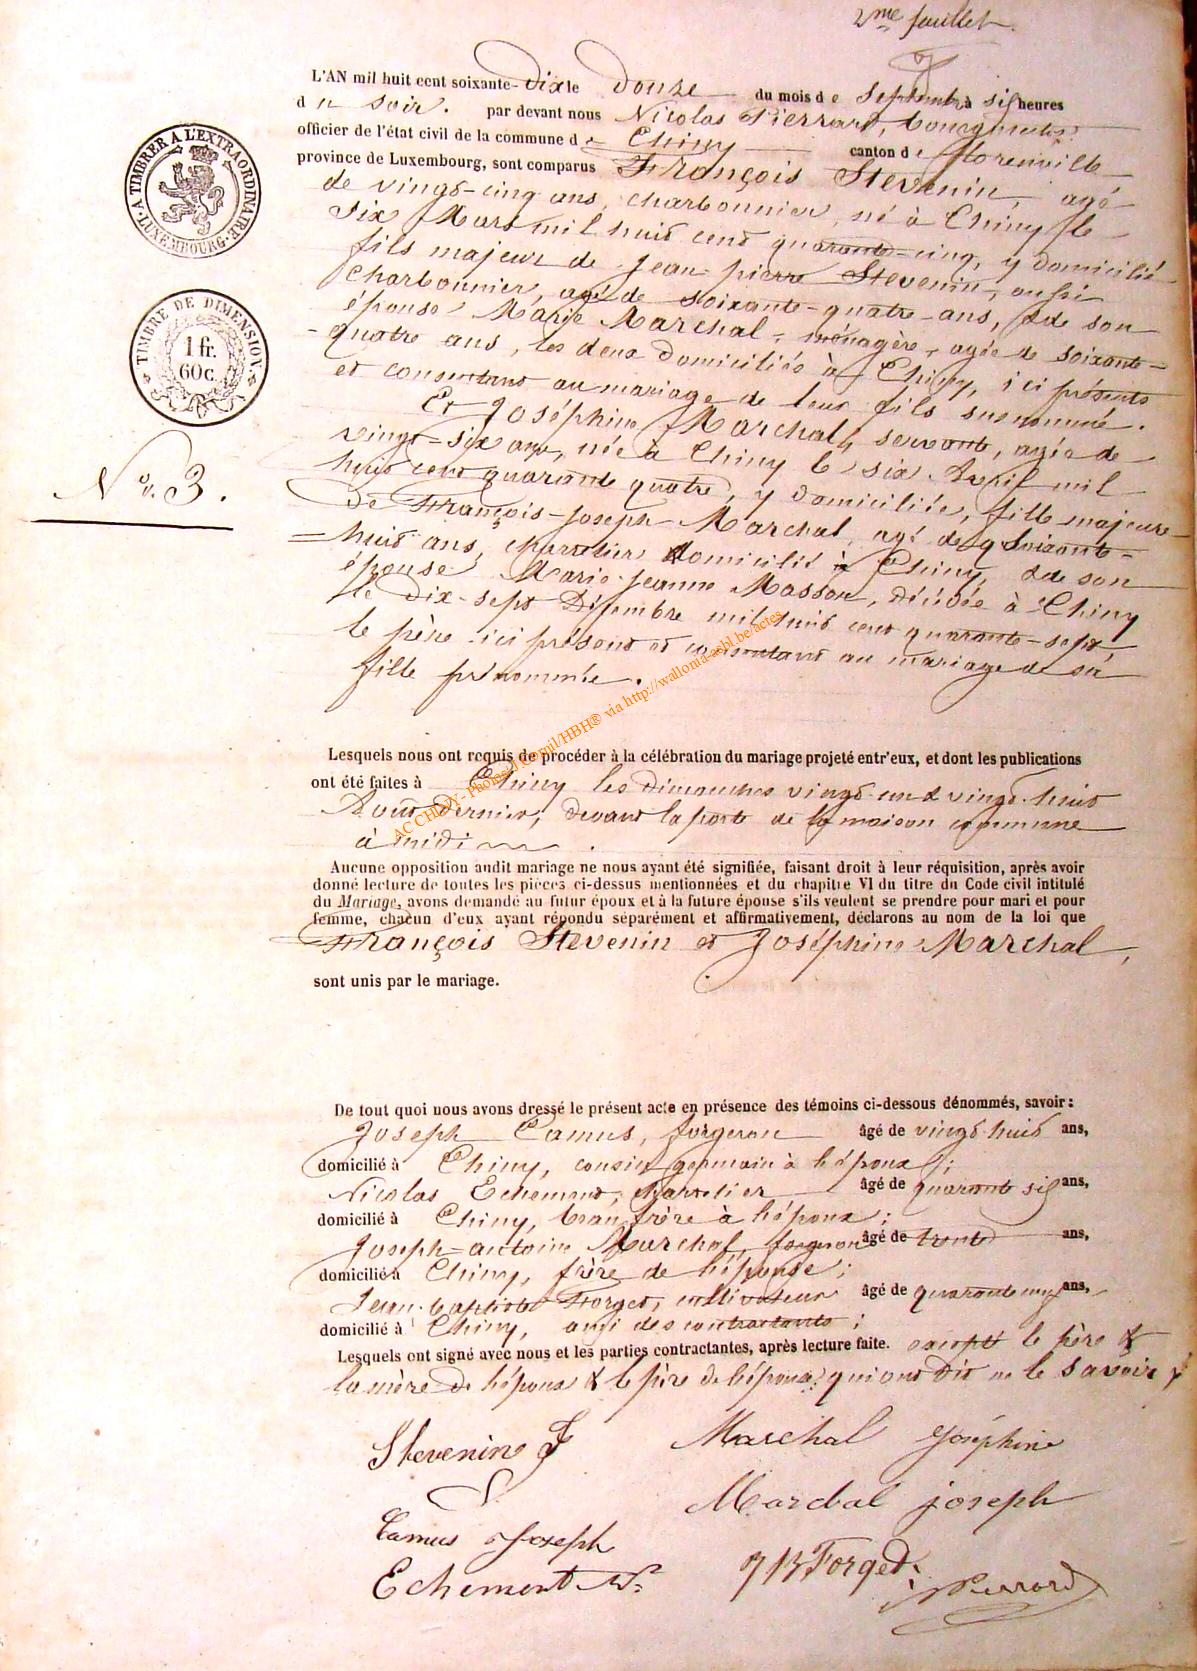 2me feuillet.
L'AN mil huit cent soixante-Dix le Douze du mois de Septembre à six heures
du soir. par devant nous Nicolas Pierrard, bourgmestre
officier de l'état civil de la commune de Chiny canton de florenville
province de Luxembourg, sont comparus François Stevenin, agé
de vingt-cinq ans, charbonnier, né à Chiny le
Six Mars mil huit cent quarante-cinq, y domicilié
fils majeur de Jean-pierre Stevenin, aussi
Charbonnier, agé de soixante-quatre-ans, & de son
épouse Marie Marchal, ménagère, agée de soixante-
-quatre ans, les deux Domiciliés à Chiny, ici présents
et consentant au mariage de leur fils susnommé.
Et Joséphine Marchal, servante, agée de
vingt-six ans, née à Chiny le six Avril mil
huit cent quarante quatre, y domiciliée, fille majeure
De François-Joseph Marchal, agé de soixante-
=huit ans, charretier domicilié à Chiny, & de son
épouse Marie-Jeanne Masson, décédée à Chiny
le Dix-sept Décembre mil huit cent quarante-sept
le père ici présent et consentant au mariage de sa
fille prénommée.
Lesquels nous ont requis de procéder à la célébration du mariage projeté entr'eux, et dont les publications
ont été faites à Chiny les Dimanches vingt-un & vingt-huit
Aout Dernier, devant la porte de la maison commune
à midi.
Aucune opposition audit mariage ne nous ayant été signifiée, faisant droit à leur réquisition, après avoir
donné lecture de toutes les pièces ci-dessus mentionnées et du chapitre VI du titre du Code civil intitulé
du Mariage, avons demandé au futur époux et à la future épouse s'ils veulent se prendre pour mari et pour
femme, chacun d'eux ayant répondu séparément et affirmativement, déclarons au nom de la loi que
François Stevenin et Joséphine Marchal,
sont unis par le mariage.
De tout quoi nous avons dressé le présent acte en présence des témoins ci-dessous dénommés, savoir:
Joseph Camus, forgeron âgé de vingt-huit ans,
domicilié à Chiny, cousin germain à l'époux;
Nicolas Echement, charretier âgé de quarante six ans,
domicilié à Chiny, beau frère à l'époux;
Joseph-antoine Marchal, forgeron âgé de trente ans,
domicilié à Chiny, frère de l'épouse;
Jean-baptiste Forget, cultivateur âgé de quarante ans,
domicilié à Chiny, ami des contractants;
Lesquels ont signé avec nous et les parties contractantes, après lecture faite. excepté le père &
la mère de l'époux & le père de l'épouse qui ont Dit ne le savoir
Stevenin J Marchal Joséphine
Marchal joseph
Camus Joseph
Echement N. J B Forget.
N Pierrard
A TIMBRER A L'EXTRAORDINAIRE
LUXEMBOURG
TIMBRE DE DIMENSION
1 fr.
60 c.
No. 3.
AC CHINY - Photos J.Cornil/HBH® via http://wallonia-asbl.be/actes